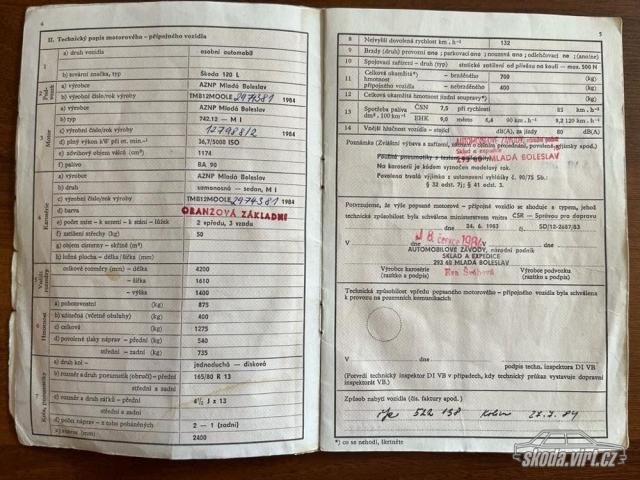 4
II. Technický popis motorového – přípojného vozidla
1
a) druh vozidla osobní automobil
b) tovární značka, typ Škoda 120 L
2 Podvozek
a) výrobce AZNP Mladá Boleslav
b) výrobní číslo/rok výroby TMB12MOOLE2974381 1984
3 Motor
a) výrobce AZNP Mladá Boleslav
b) typ 742.12 – M I
c) výrobní číslo/rok výroby 1984
d) plný výkon kW při ot. min.⁻¹ 36,7/5000 ISO
e) zdvihový objem válců (cm³) 1174
f) palivo BA 90
4 Karosérie
a) výrobce AZNP Mladá Boleslav
b) druh samonosná – sedan, M I
c) výrobní číslo/rok výroby TMB12MOOLE2974381 1984
d) barva ORANŽOVÁ ZÁKLADNÍ
e) počet míst – k sezení – k stání – lůžek 2 vpředu, 3 vzadu
f) zatížení střechy (kg) 50
g) objem cisterny – skříně (m³)
h) ložná plocha – délka/šířka (mm)
5 rozměry
celkové rozměry (mm) – délka 4200
– šířka 1610
– výška 1400
6 Hmotnost
a) pohotovostní (kg) 875
b) užitečná (včetně obsluhy) (kg) 400
c) celková (kg) 1275
d) povolené tlaky náprav – přední (kg) 540
– zadní (kg) 735
7 Kola, pneumatiky
a) druh kol – jednoduchá – disková
b) rozměr a druh pneumatik (obručí) – přední 165/80 R 13
střední a zadní
c) rozměr a druh ráfků – přední 4½ J x 13
střední a zadní
d) počet náprav – z toho poháněných 2 – 1 (zadní)
e) rozvor (mm) 2400
5
8 Nejvyšší dovolená rychlost km . h⁻¹ 132
9 Brzdy (druh) provozní ano ; parkovací ano ; nouzová ano ; odlehčovací ne ; (ano/ne)
10 Spojovací zařízení (druh, typ) statické zatížení od přívěsu na kouli – max. 500 N
11 Celková okamžitá*) hmotnost přípojného vozidla – brzděného 700 (kg)
– nebrzděného 400 (kg)
12 Celková okamžitá hmotnost jízdní soupravy*) (kg)
13 Spotřeba paliva dm³.100 km⁻¹ ČSN 7,5 při rychlosti 85 km . h⁻¹
EHK 9,0 města, 6,4 90 km.h⁻¹ 9,2 120 km.h⁻¹
14 Vnější hlučnost vozidla – stojící dB(A), za jízdy 80 dB(A)
Poznámka (Zvláštní výbava a zařízení, záznam o dílčím provedení, povolené výjimky apod.)
AUTOMOBILOVÉ ZÁVODY, národní podnik
Sklad a expedice
293 60 MLADÁ BOLESLAV
Na karoserii je kódem vyznačen modelový rok.
Povolena trvalá výjimka z ustanovení vyhlášky č. 90/75 Sb.:
§ 32 odst. 7; § 41 odst. 3.
Potvrzujeme, že výše popsané motorové – přípojné vozidlo se shoduje s typem, jehož
technická způsobilost byla schválena ministerstvem vnitra ČSR — Správou pro dopravu
dne 24. 6. 1983 č. SD/12-2687/83
18. července 1984
AUTOMOBILOVÉ ZÁVODY, národní podnik
SKLAD A EXPEDICE
293 60 MLADÁ BOLESLAV
Výrobce karosérie (razítko a podpis)
Výrobce podvozku (razítko a podpis)
Technická způsobilost vpředu popsaného motorového – přípojného vozidla byla schválena
k provozu na pozemních komunikacích
V dne
podpis techn. inspektora DI VB
(Potvrdí technický inspektor DI VB v případech, kdy technický průkaz vystavuje dopravní
inspektorát VB.)
Způsob nabytí vozidla (čís. faktury apod.)
522 198 27.7.84
*) co se nehodí, škrtněte
skoda.virt.cz